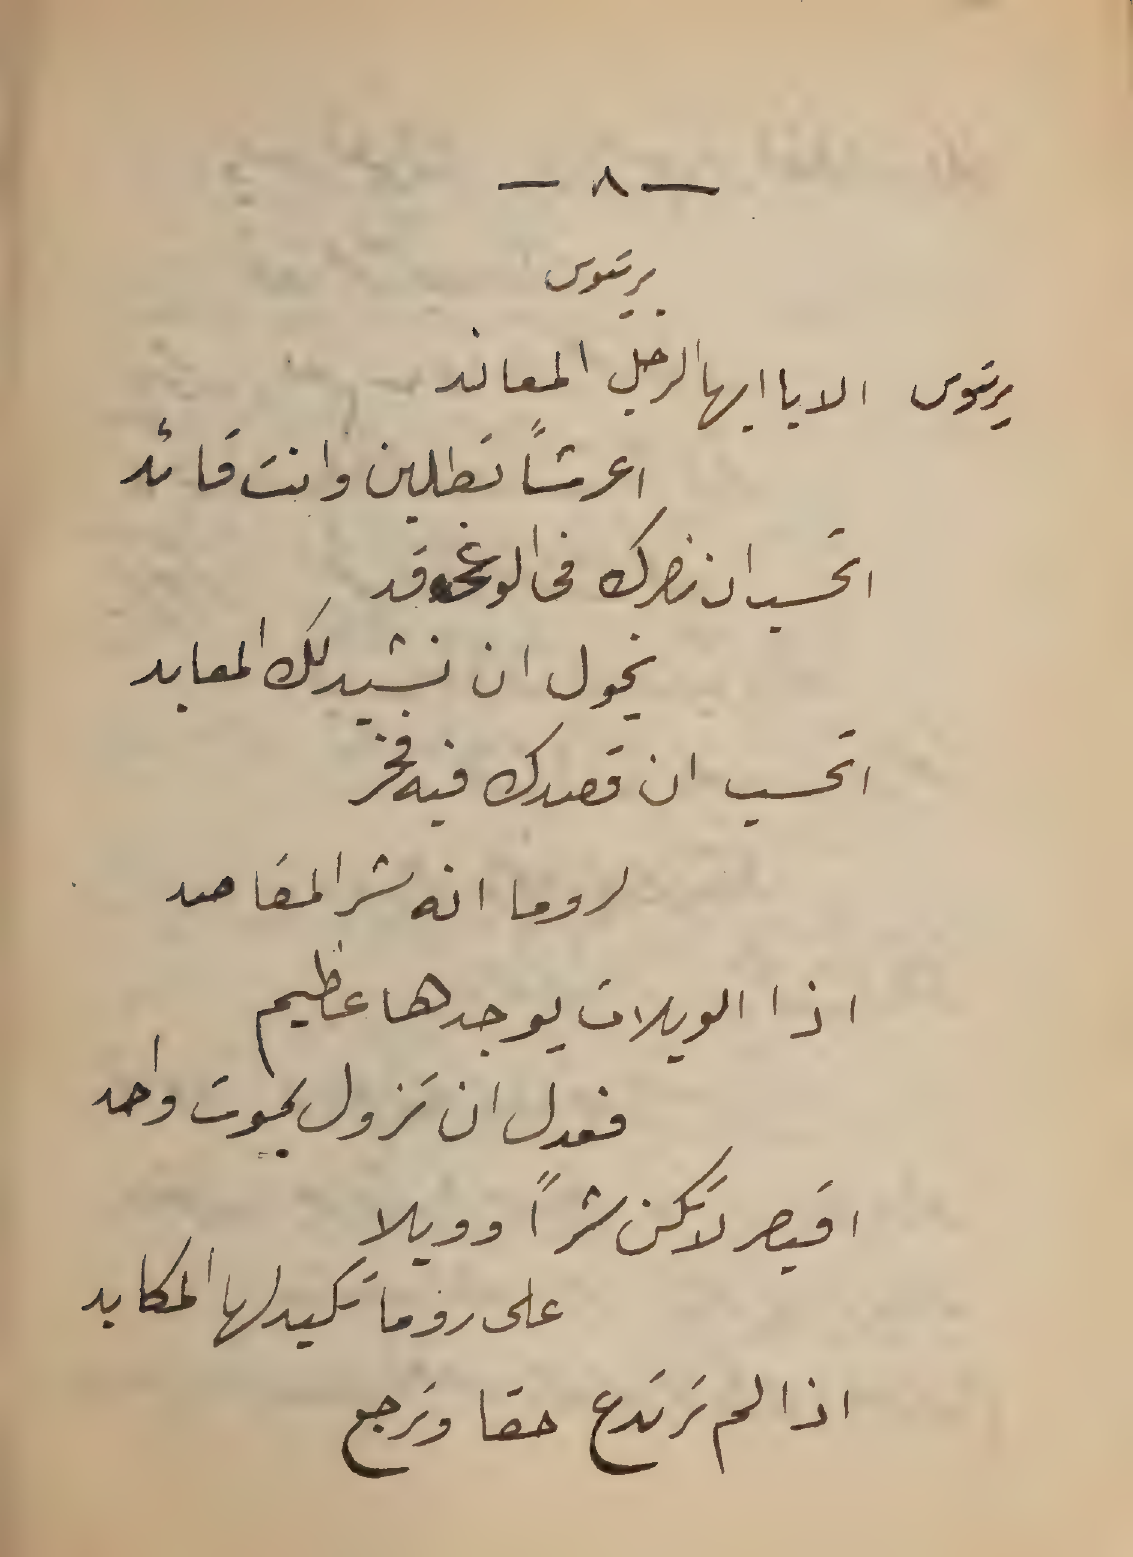 — ٨ —
برتوس
برتوس الا يا ايها الرجل المعاند
اعرشاً تطلبن وانت قائد
اتحسب ان نصرك فى الوغى قد
يخول ان نشيد لك المعابد
اتحسب ان قصدك فيه فخر
لروما انه شر المقاصد
اذا الويلات يوجدها عظيم
فعدل ان تزول بموت واحد
اقيصر لا تكن شراً وويلا
على روما تكيد لها المكايد
اذا لم ترتدع حقا وترجع